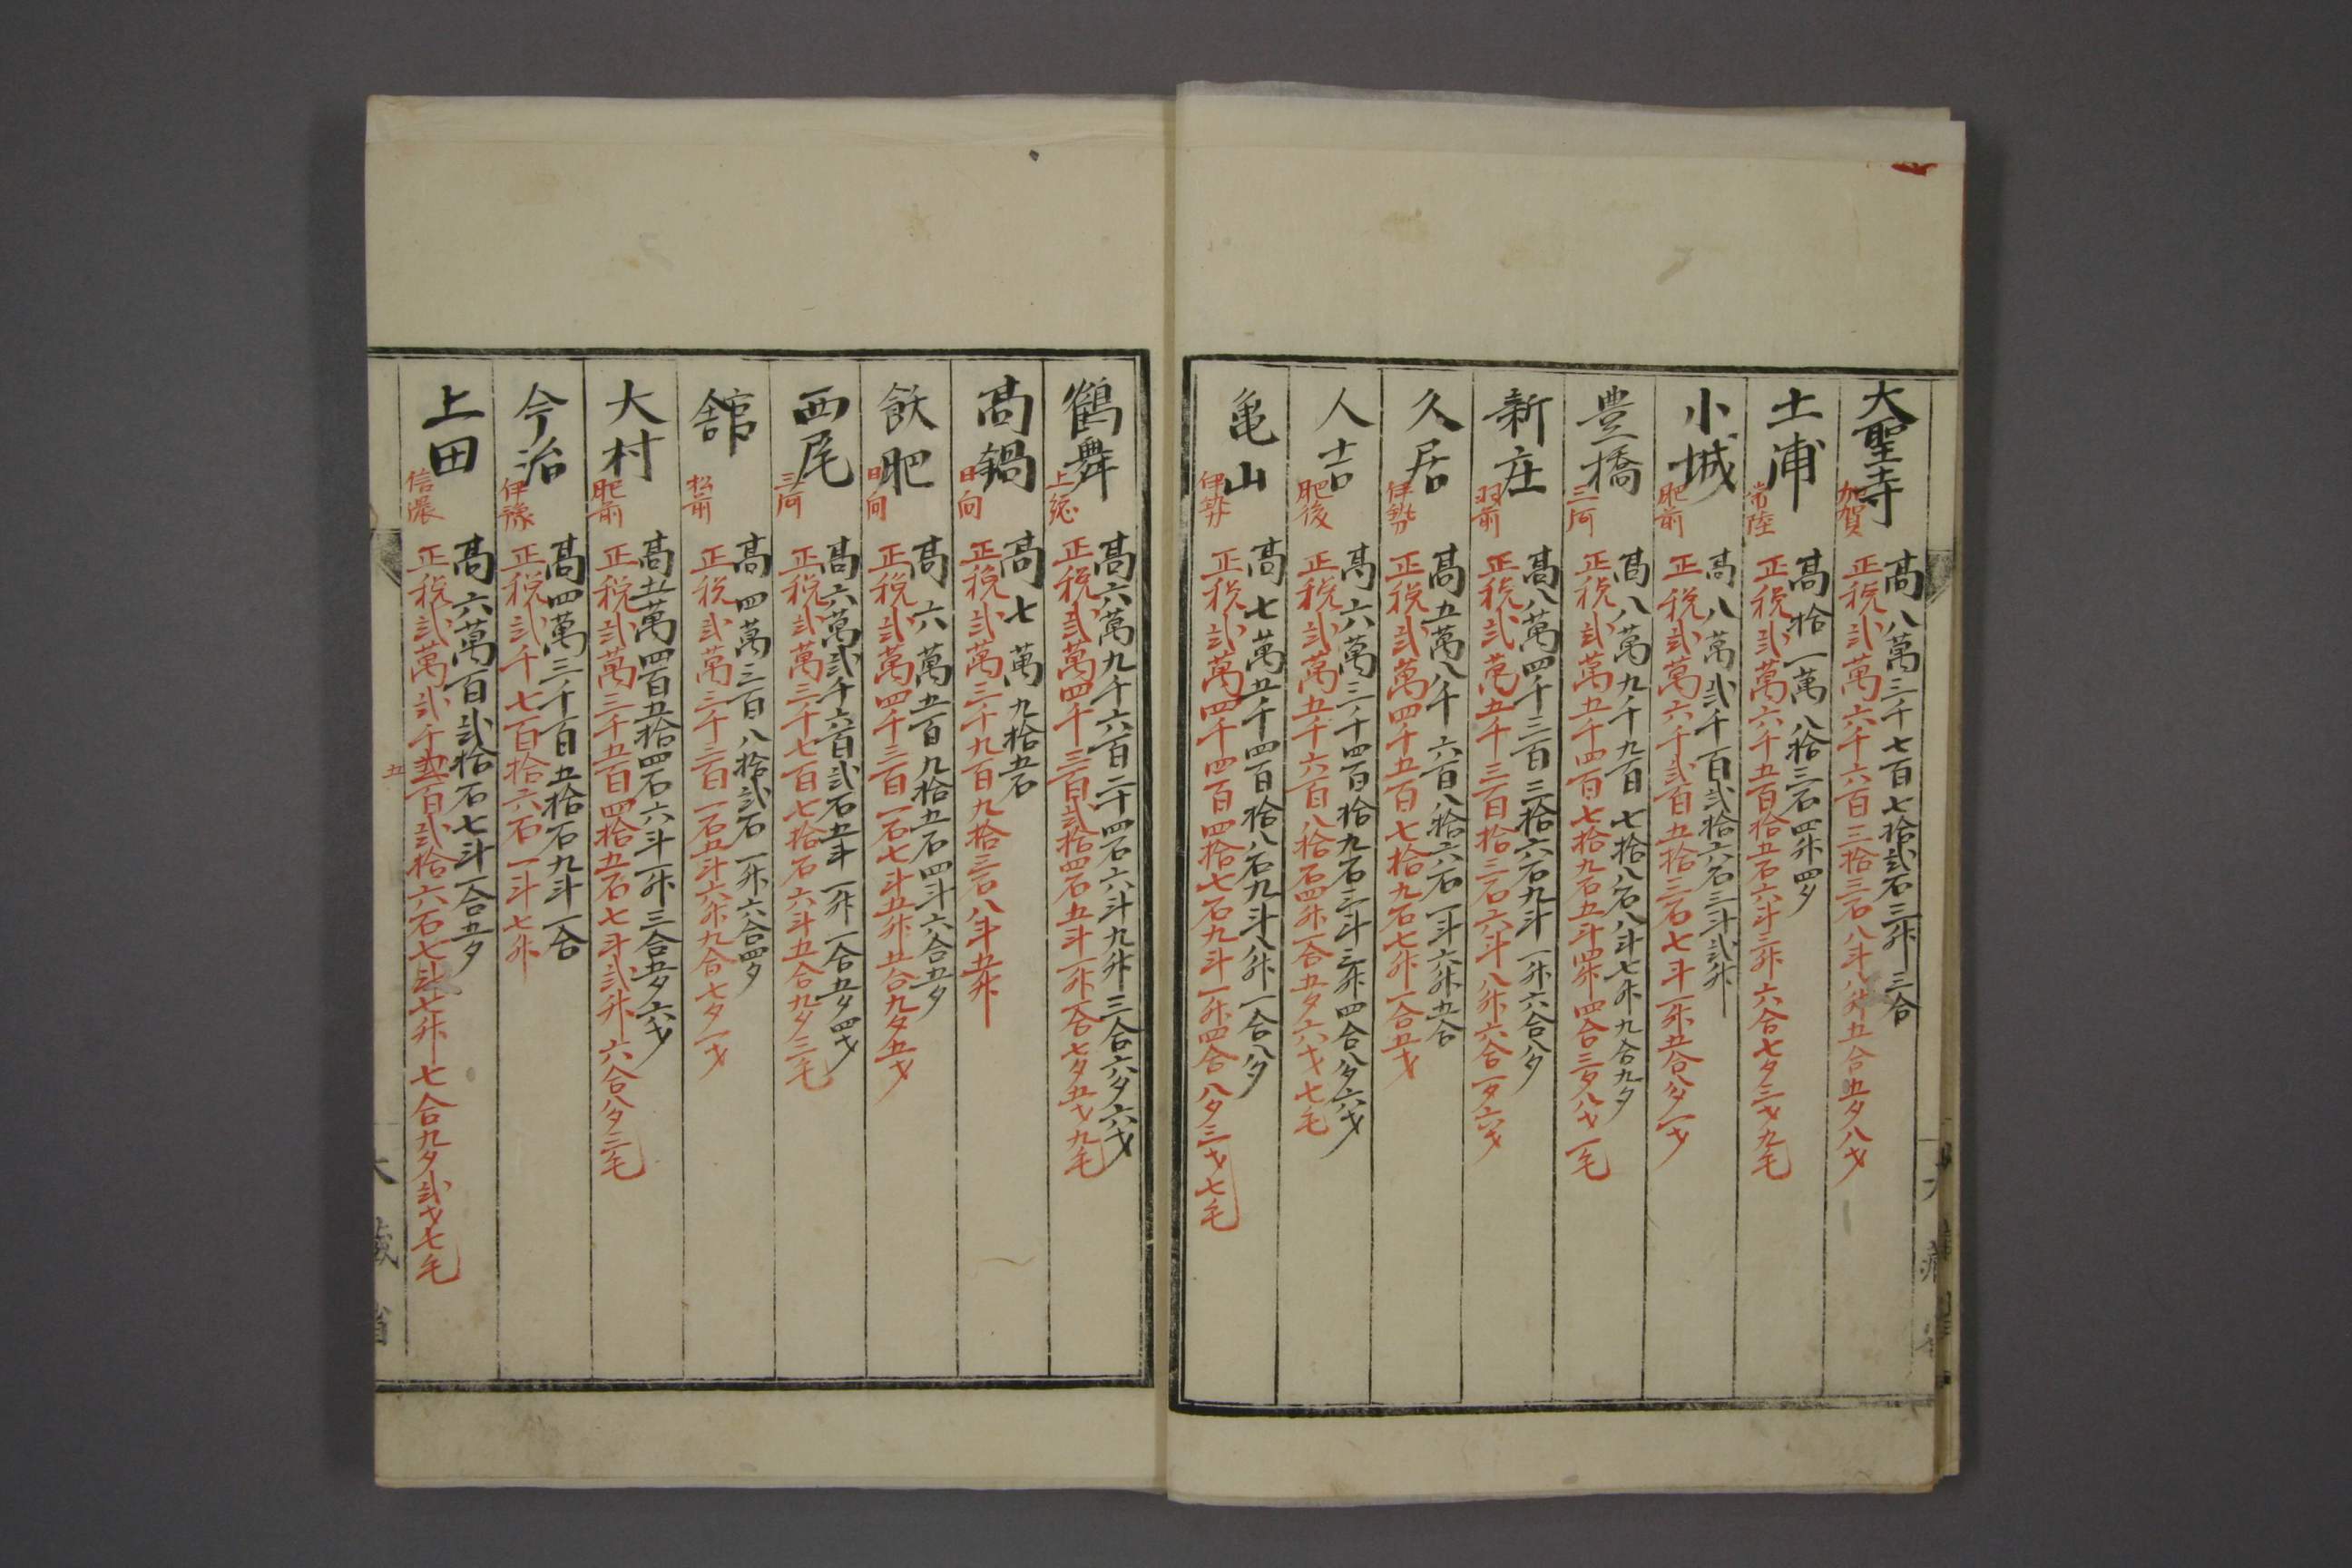 大聖寺
加賀
高八萬三千七百七拾弐石三升三合
正税弐萬六千六百三拾三石八斗八升五合五夕八才
土浦
常陸
高拾一萬八拾三石四升四夕
正税弐萬六千五百拾五石六斗三升六合七夕三才九毛
小城
肥前
高八萬弐千百弐拾六石三斗弐升
正税弐萬六千弐百五拾三石七斗一升五合八夕一才
豊橋
三河
高八萬九千九百七拾八石八斗七升九合九夕
正税弐萬五千四百七拾九石五斗四升四合三夕八才一毛
新庄
羽前
高八萬四千三百三拾六石九斗一升六合八夕
正税弐萬五千三百拾三石六斗八升六合一夕六才
久居
伊勢
高五萬八千六百八拾六石一斗六升五合
正税弐萬四千五百七拾九石七升一合五才
人吉
肥後
高六萬三千四百拾九石三斗三升四合八夕六才
正税弐萬五千六百八拾石四升一合五夕六才七毛
亀山
伊勢
高七萬五千四百拾八石九斗八升一合八夕
正税弐萬四千四百四拾七石九斗一升四合八夕三才七毛
鶴舞
上総
高六萬九千六百二十四石六斗九升三合六夕六才
正税弐萬四千三百弐拾四石五斗一升一合七夕五才九毛
高鍋
日向
高七萬九拾五石
正税弐萬三千九百九拾三石八斗五升
飫肥
日向
高六萬五百九拾五石四斗六合五夕
正税弐萬四千三百一石七斗五升五合九夕五才
西尾
三河
高六萬弐千六百弐石五斗一升一合五夕四才
正税弐萬三千七百七拾石六斗五合九夕三毛
舘
松前
高四萬三百八拾弐石一升六合四夕
正税弐萬三千三百一石五斗六升九合七夕一才
大村
肥前
高五萬四百五拾四石六斗一升三合五夕六才
正税弐萬三千五百四拾五石七斗弐升六合八夕三毛
今治
伊豫
高四萬三千百五拾石九斗一合
正税弐千七百拾六石一斗七升
上田
信濃
高六萬百弐拾石七斗一合五夕
正税弐萬弐千五百弐拾六石七斗七升七合九夕弐才七毛
五
大蔵省